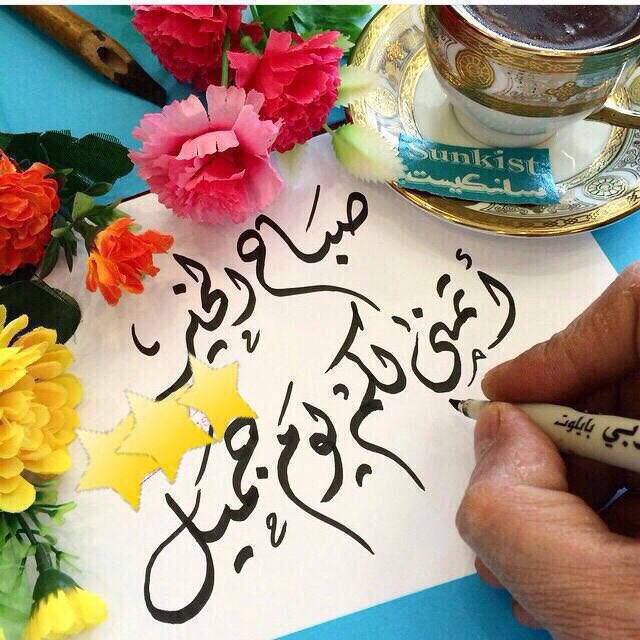 Sunkist
سانكيست
صباح الخير
أتمنى لكم يوم جميل
بي بايلوت